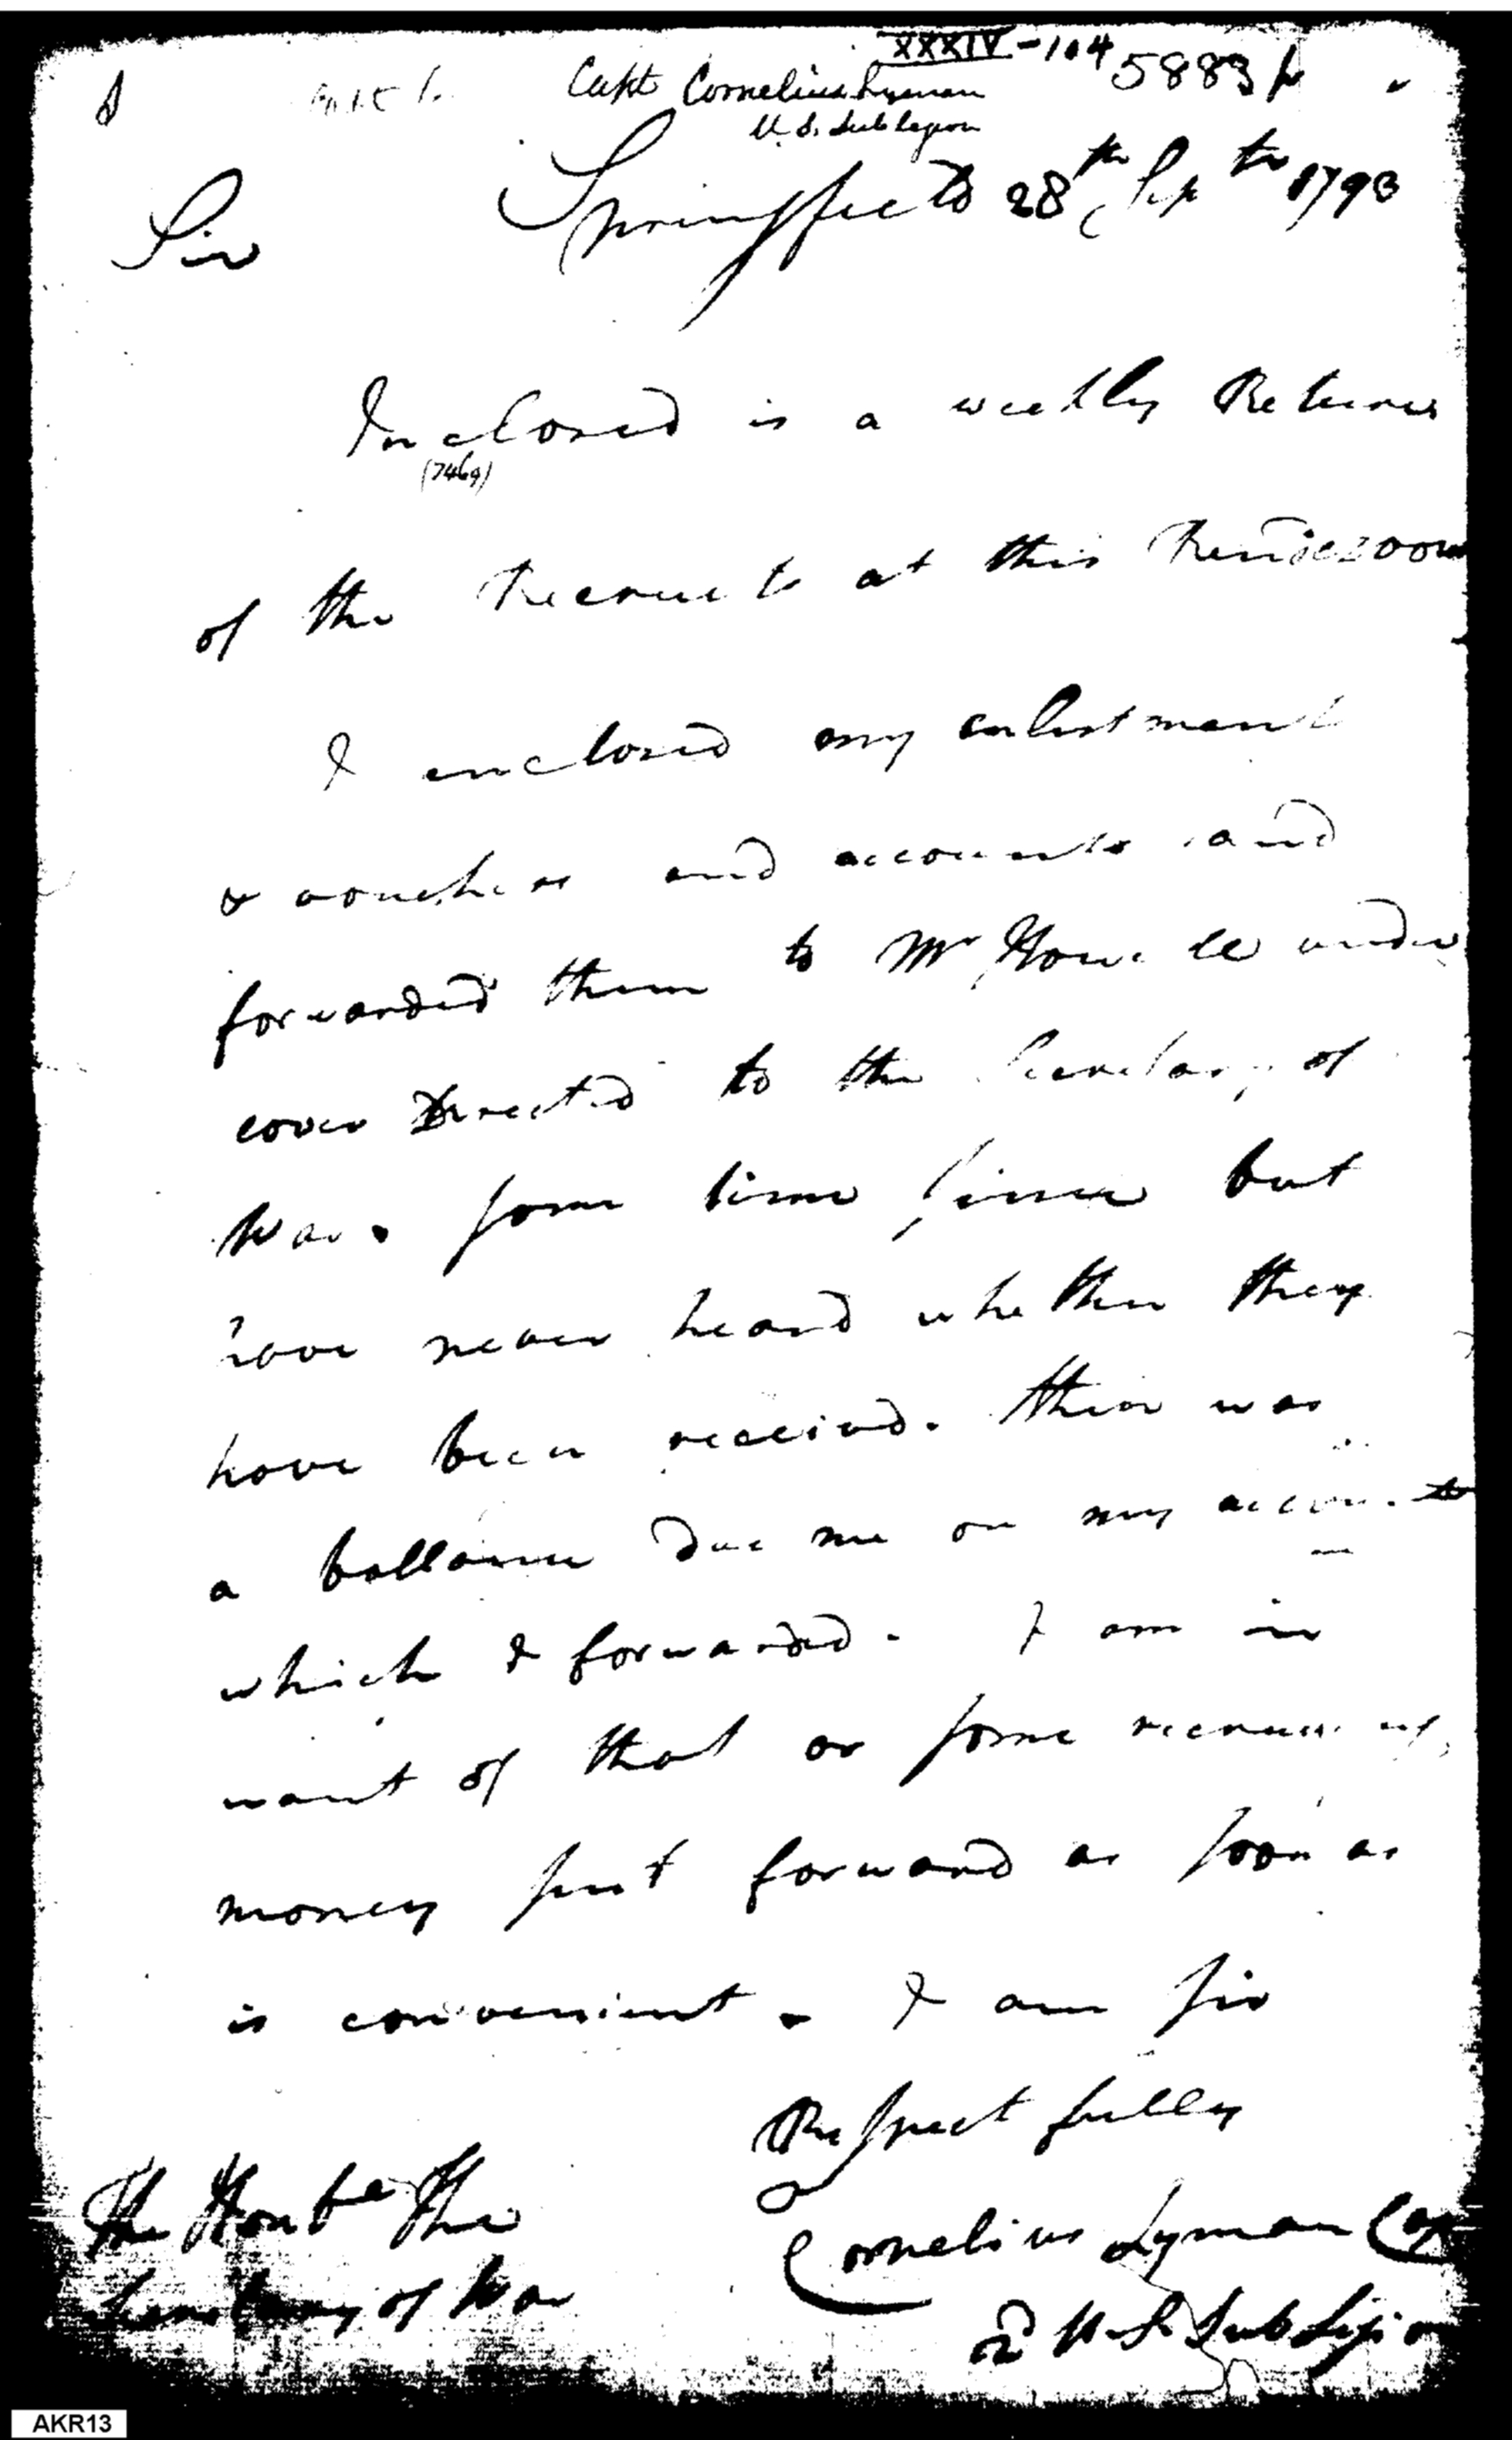 XXXIV-104 5883
Capt Cornelius Lyman
U.S. Sub legion
Springfield 28th Sepr 1793
Sir
Inclosed is a weekly Return
(7469)
of the Recruits at this Rendezvous
I enclosed my enlistments
& vouchers and accounts and
forwarded them to Mr Howell under
cover Directed to the Secretary of
War. some time since but
have never heard whether they
have been received. their was
a ballance Due me on my accounts
which I forwarded. I am in
want of that or some recruiting
money sent forward as soon as
is convenient. I am Sir
Respectfully
Cornelius Lyman Capt
2d U.S. Sub Legion
The Honble The
Secretary of War
AKR13